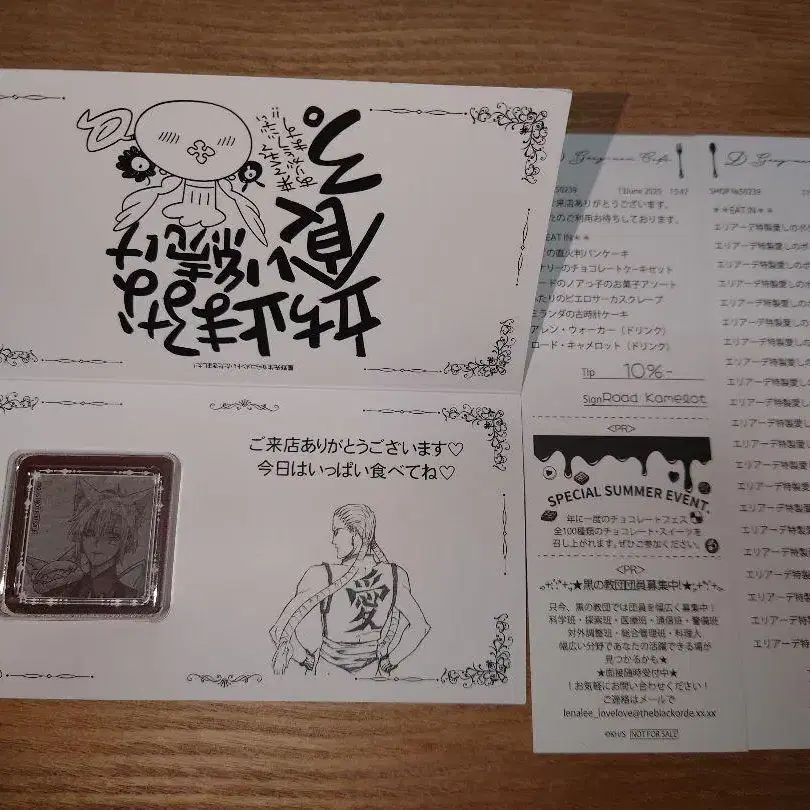 立ち止まるな
食い続け
ろ。
星野先生からコメントいただきました!
ご来店ありがとうございます♡
今日はいっぱい食べてね♡
愛
Gray-man Cafe
50239 13June 2025 15:47
来店ありがとうございます。
たのご利用お待ちしております。
EAT IN＊＊
の直火判パンケーキ
ナリーのチョコレートケーキセット
ードのノアっ子のお菓子アソート
ふたりのピエロサーカスクレープ
ミランダの古時計ケーキ
アレン・ウォーカー（ドリンク）
ロード・キャメロット（ドリンク）
Tip 10%-
Sign Road Kamelot
<PR>
SPECIAL SUMMER EVENT.
年に一度のチョコレートフェス
全100種類のチョコレート・スイーツを
召し上がれます。ぜひご参加ください。
<PR>
★黒の教団団員募集中!★
只今、黒の教団では団員を幅広く募集中！
科学班・探索班・医療班・通信班・警備班
対外調整班・総合管理班・料理人
幅広い分野であなたの活躍できる場が
見つかるかも★
★面接随時受付中★
！お気軽にお問い合わせください！
ご連絡はメールで
lenalee_lovelove@theblackorde.xx.xx
©KH/S NOT FOR SALE
D Gray-man
SHOP №50239
＊＊EAT IN＊＊
エリアーデ特製愛しのポ
エリアーデ特製愛しのポ
エリアーデ特製愛しのポ
エリアーデ特製愛しのポ
エリアーデ特製愛しの
エリアーデ特製愛しの
エリアーデ特製愛しの
エリアーデ特製愛しの
エリアーデ特製愛しの
エリアーデ特製愛し
エリアーデ特製愛し
エリアーデ特製愛し
エリアーデ特製愛
エリアーデ特製愛
エリアーデ特製愛
エリアーデ特製
エリアーデ特製
エリアーデ特製
エリアーデ特製